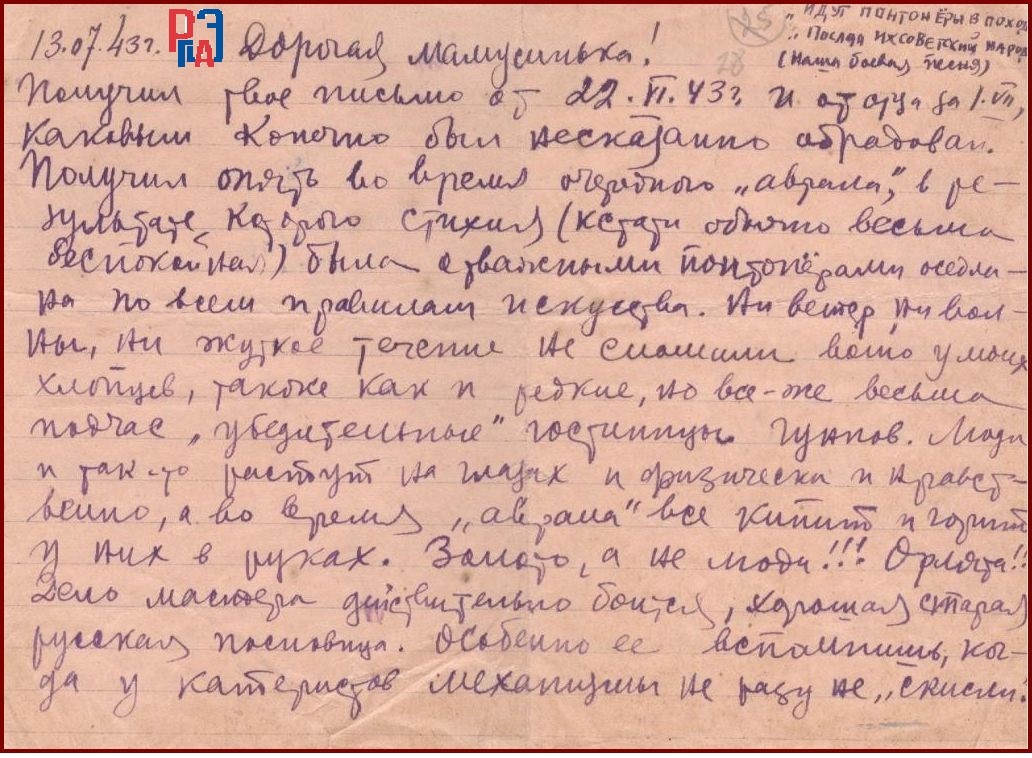 „ИДУТ ПОНТОНЁРЫ В ПОХОД
„ Послал их советский народ
(Наша боевая песня)
25
28
13.07.43г. РГАЭ Дорогая мамусинька!
Получил твое письмо от 22.VI.43г. и от отца за 1.VII,
каковым конечно был несказанно обрадован.
Получил опять во время очередного „аврала”, в ре-
зультате которого стихия (кстати обычно весьма
беспокойная) была отважными понтонёрами оседла-
на по всем правилам искусства. Ни ветер ни вол-
ны, ни жуткое течение не сломили волю у моих
хлопцев, также как и редкие, но все-же весьма
подчас „убедительные” гостинцы гуннов. Люди
и так-то растут на глазах и физически и нравст-
венно, а во время „аврала” все кипит и горит
у них в руках. Золото, а не люди!!! Орлята!!
Дело мастера действительно боится, хорошая старая
русская пословица. Особенно ее вспомнишь, ко-
да у катеристов механизмы не разу не „скисли”.